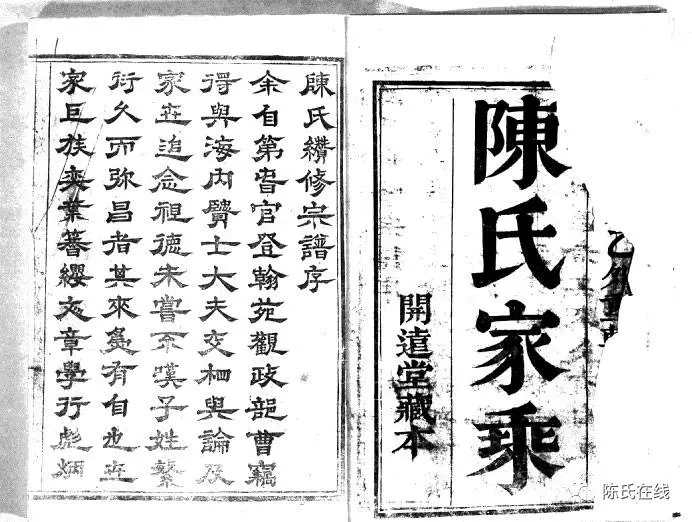 乙
陳氏家乘
開遠堂藏本
陳氏纘修宗譜序
余自第官登翰苑觀政部曹竊
得與海内賢士大夫交與論及
家世追念祖德未嘗不嘆子姓繁
衍久而弥昌者其來夐有自也世
家巨族奕葉簪纓文章學行彪炳
陈氏在线